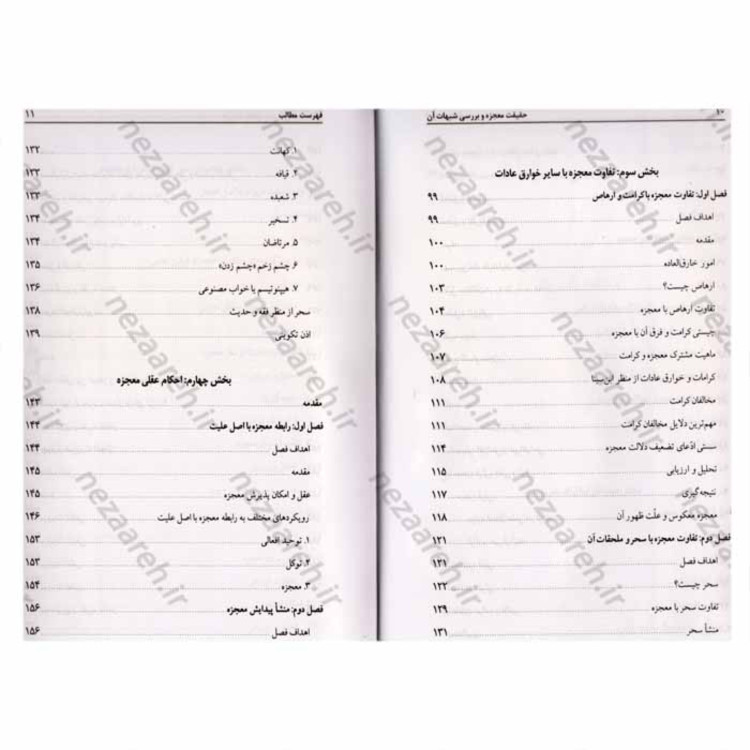 ۱۰ حقیقت معجزه و بررسی شبهات آن
بخش سوم: تفاوت معجزه با سایر خوارق عادات
فصل اول: تفاوت معجزه با کرامت و ارهاص ۹۹
اهداف فصل ۹۹
مقدمه ۱۰۰
امور خارق‌العاده ۱۰۰
ارهاص چیست؟ ۱۰۳
تفاوت ارهاص با معجزه ۱۰۴
چیستی کرامت و فرق آن با معجزه ۱۰۶
ماهیت مشترک معجزه و کرامت ۱۰۷
کرامات و خوارق عادات از منظر ابن‌سینا ۱۰۸
مخالفان کرامت ۱۱۱
مهم‌ترین دلایل مخالفان کرامت ۱۱۱
سستی ادّعای تضعیف دلالت معجزه ۱۱۴
تحلیل و ارزیابی ۱۱۵
نتیجه‌گیری ۱۱۷
معجزه معکوس و علّت ظهور آن ۱۱۸
فصل دوم: تفاوت معجزه با سحر و ملحقات آن ۱۲۱
اهداف فصل ۱۲۱
سحر چیست؟ ۱۲۲
تفاوت سحر با معجزه ۱۲۹
منشأ سحر ۱۳۱
فهرست مطالب ۱۱
۱. کهانت ۱۳۲
۲. قیافه ۱۳۳
۳. شعبده ۱۳۳
۴. تسخیر ۱۳۴
۵. مرتاضان ۱۳۴
۶. چشم زخم «چشم زدن» ۱۳۵
۷. هیپنوتیسم یا خواب مصنوعی ۱۳۶
سحر از منظر فقه و حدیث ۱۳۸
اذن تکوینی ۱۳۹
بخش چهارم: احکام عقلی معجزه
مقدمه ۱۴۳
فصل اول: رابطه معجزه با اصل علیت ۱۴۴
اهداف فصل ۱۴۴
مقدمه ۱۴۵
عقل و امکان پذیرش معجزه ۱۴۵
رویکردهای مختلف به رابطه معجزه با اصل علیت ۱۴۶
۱. توحید افعالی ۱۵۳
۲. توکل ۱۵۳
۳. معجزه ۱۵۴
فصل دوم: منشأ پیدایش معجزه ۱۵۶
اهداف فصل ۱۵۶
nezaareh.ir
nezaareh.ir
nezaareh.ir
nezaareh.ir
nezaareh.ir
nezaareh.ir
nezaareh.ir
nezaareh.ir
nezaareh.ir
nezaareh.ir
nezaareh.ir
nezaareh.ir